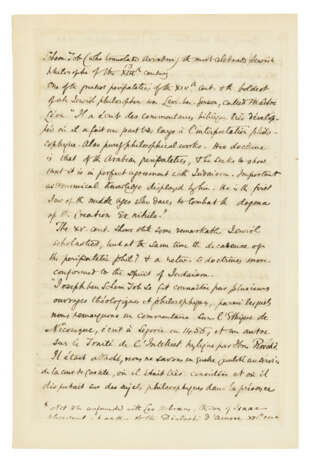 Schem Tob (who translated Averroes) the most celebrated Jewish
philosopher of the XIIIth century
One of the greatest peripatetics of the XIVth cent. & the boldest
of all Jewish philosophers was Levi ben Gerson, called "Maître
Léon" "Il a écrit des commentaires biblique très dévelop-
pés où il a fait une part très large à l'interprétation philo-
sophique. Also purely philosophical works. His doctrine
is that of the Arabian peripatetics, & he seeks to show
that it is in perfect agreement with Judaism. Important
astronomical knowledge displayed by him. He is the first
Jew of the middle ages who dares to combat the dogma
of the creation ex nihilo.
The XV cent. shows still some remarkable Jewish
scholastics, but at the same time the decadence of
the peripatetic phil? & a return to doctrines more
conformed to the spirit of Judaism.
Joseph ben Schem Tob se fit connaître par plusieurs
ouvrages théologiques et philosophiques, parmi lesquels
nous remarquons un commentaire sur l'Ethique de
Nicomaque, écrit à Ségovie en 1455, et un autre
sur le Traité de l'Intellect hylique par Ibn Roschd.
Il était attaché, nous ne savons en quelle qualité au service
de la cour de Castille, où il était très considéré et où il
disputait sur des sujets philosophiques dans la présence
* Not to be confounded with Leo Hebraeus,
the Dialoghi d'Amore XVIth cent